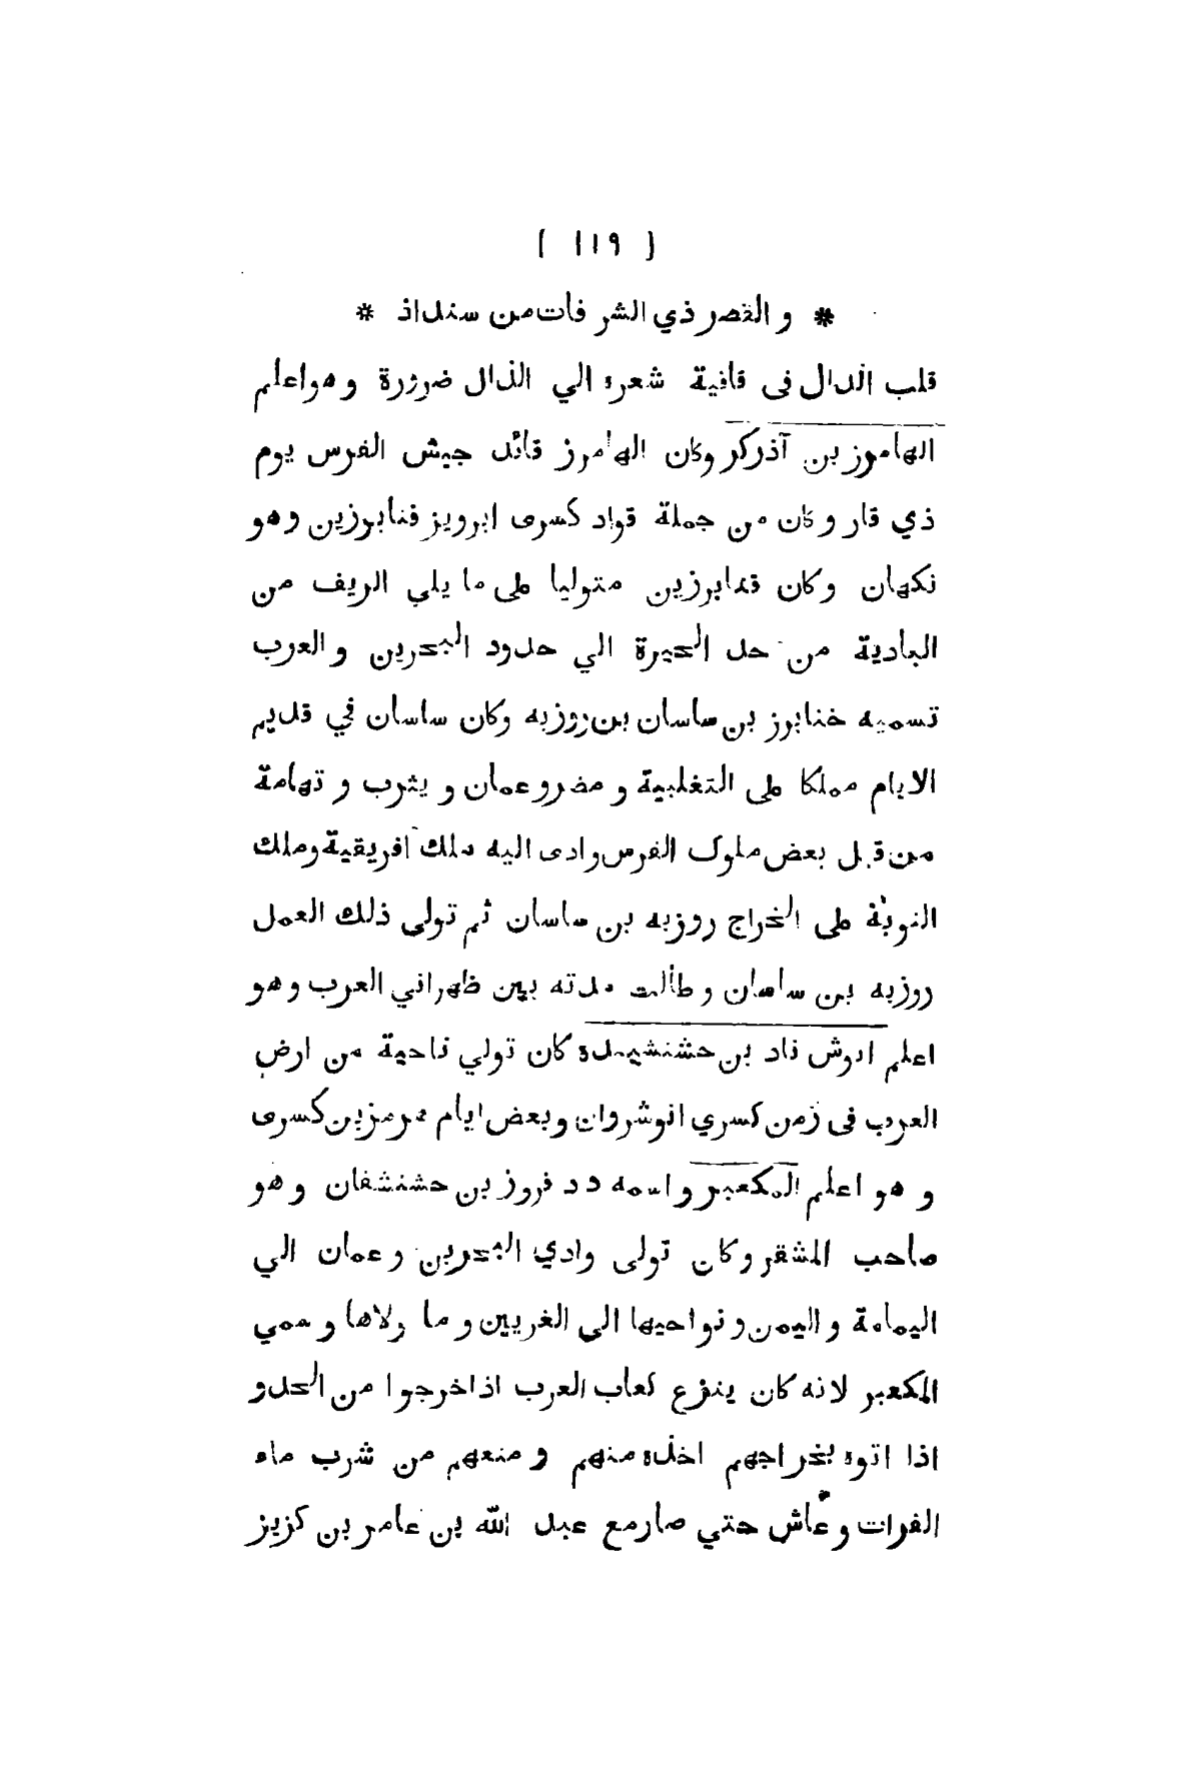 ( ١١٩ )
* و القصر ذي الشر فات من سنداذ *
قلب الدال فى قافية شعره الي الذال ضرورة و هو اعلم
الهامرز بن آذركر وكان الهامرز قائد جيش الفرس يوم
ذي قار و كان من جملة قواد كسرى ابرويز فنابرزين وهو
نكهان وكان قنابرزين متوليا على ما يلي الريف من
البادية من حد الحيرة الي حدود البحرين و العرب
تسميه خنابرز بن ساسان بن روزبه وكان ساسان في قديم
الايام مملكا على التغلبية و مضر و عمان و يثرب و تهامة
من قبل بعض ملوك الفرس وادى اليه ملك افريقية وملك
النوبة على الخراج روزبه بن ساسان ثم تولى ذلك العمل
روزبه بن ساسان و طالت مدته بين ظهراني العرب و هو
اعلم انوش ناد بن حشنشبنده كان تولي ناحية من ارض
العرب فى زمن كسري انوشروان و بعض ايام هرمز بن كسرى
و هو اعلم المكعبر و اسمه دد فروز بن حشنشفان و هو
صاحب المشقر وكان تولى وادي البحرين و عمان الي
اليمامة و اليمن و نواحيها الى الغريين و ما والاها و سمي
المكعبر لانه كان ينزع كعاب العرب اذا خرجوا من الحد و
اذا اتوه بخراجهم اخذه منهم و منعهم من شرب ماء
الفرات و عاش حتي صار مع عبد الله بن عامر بن كزيز